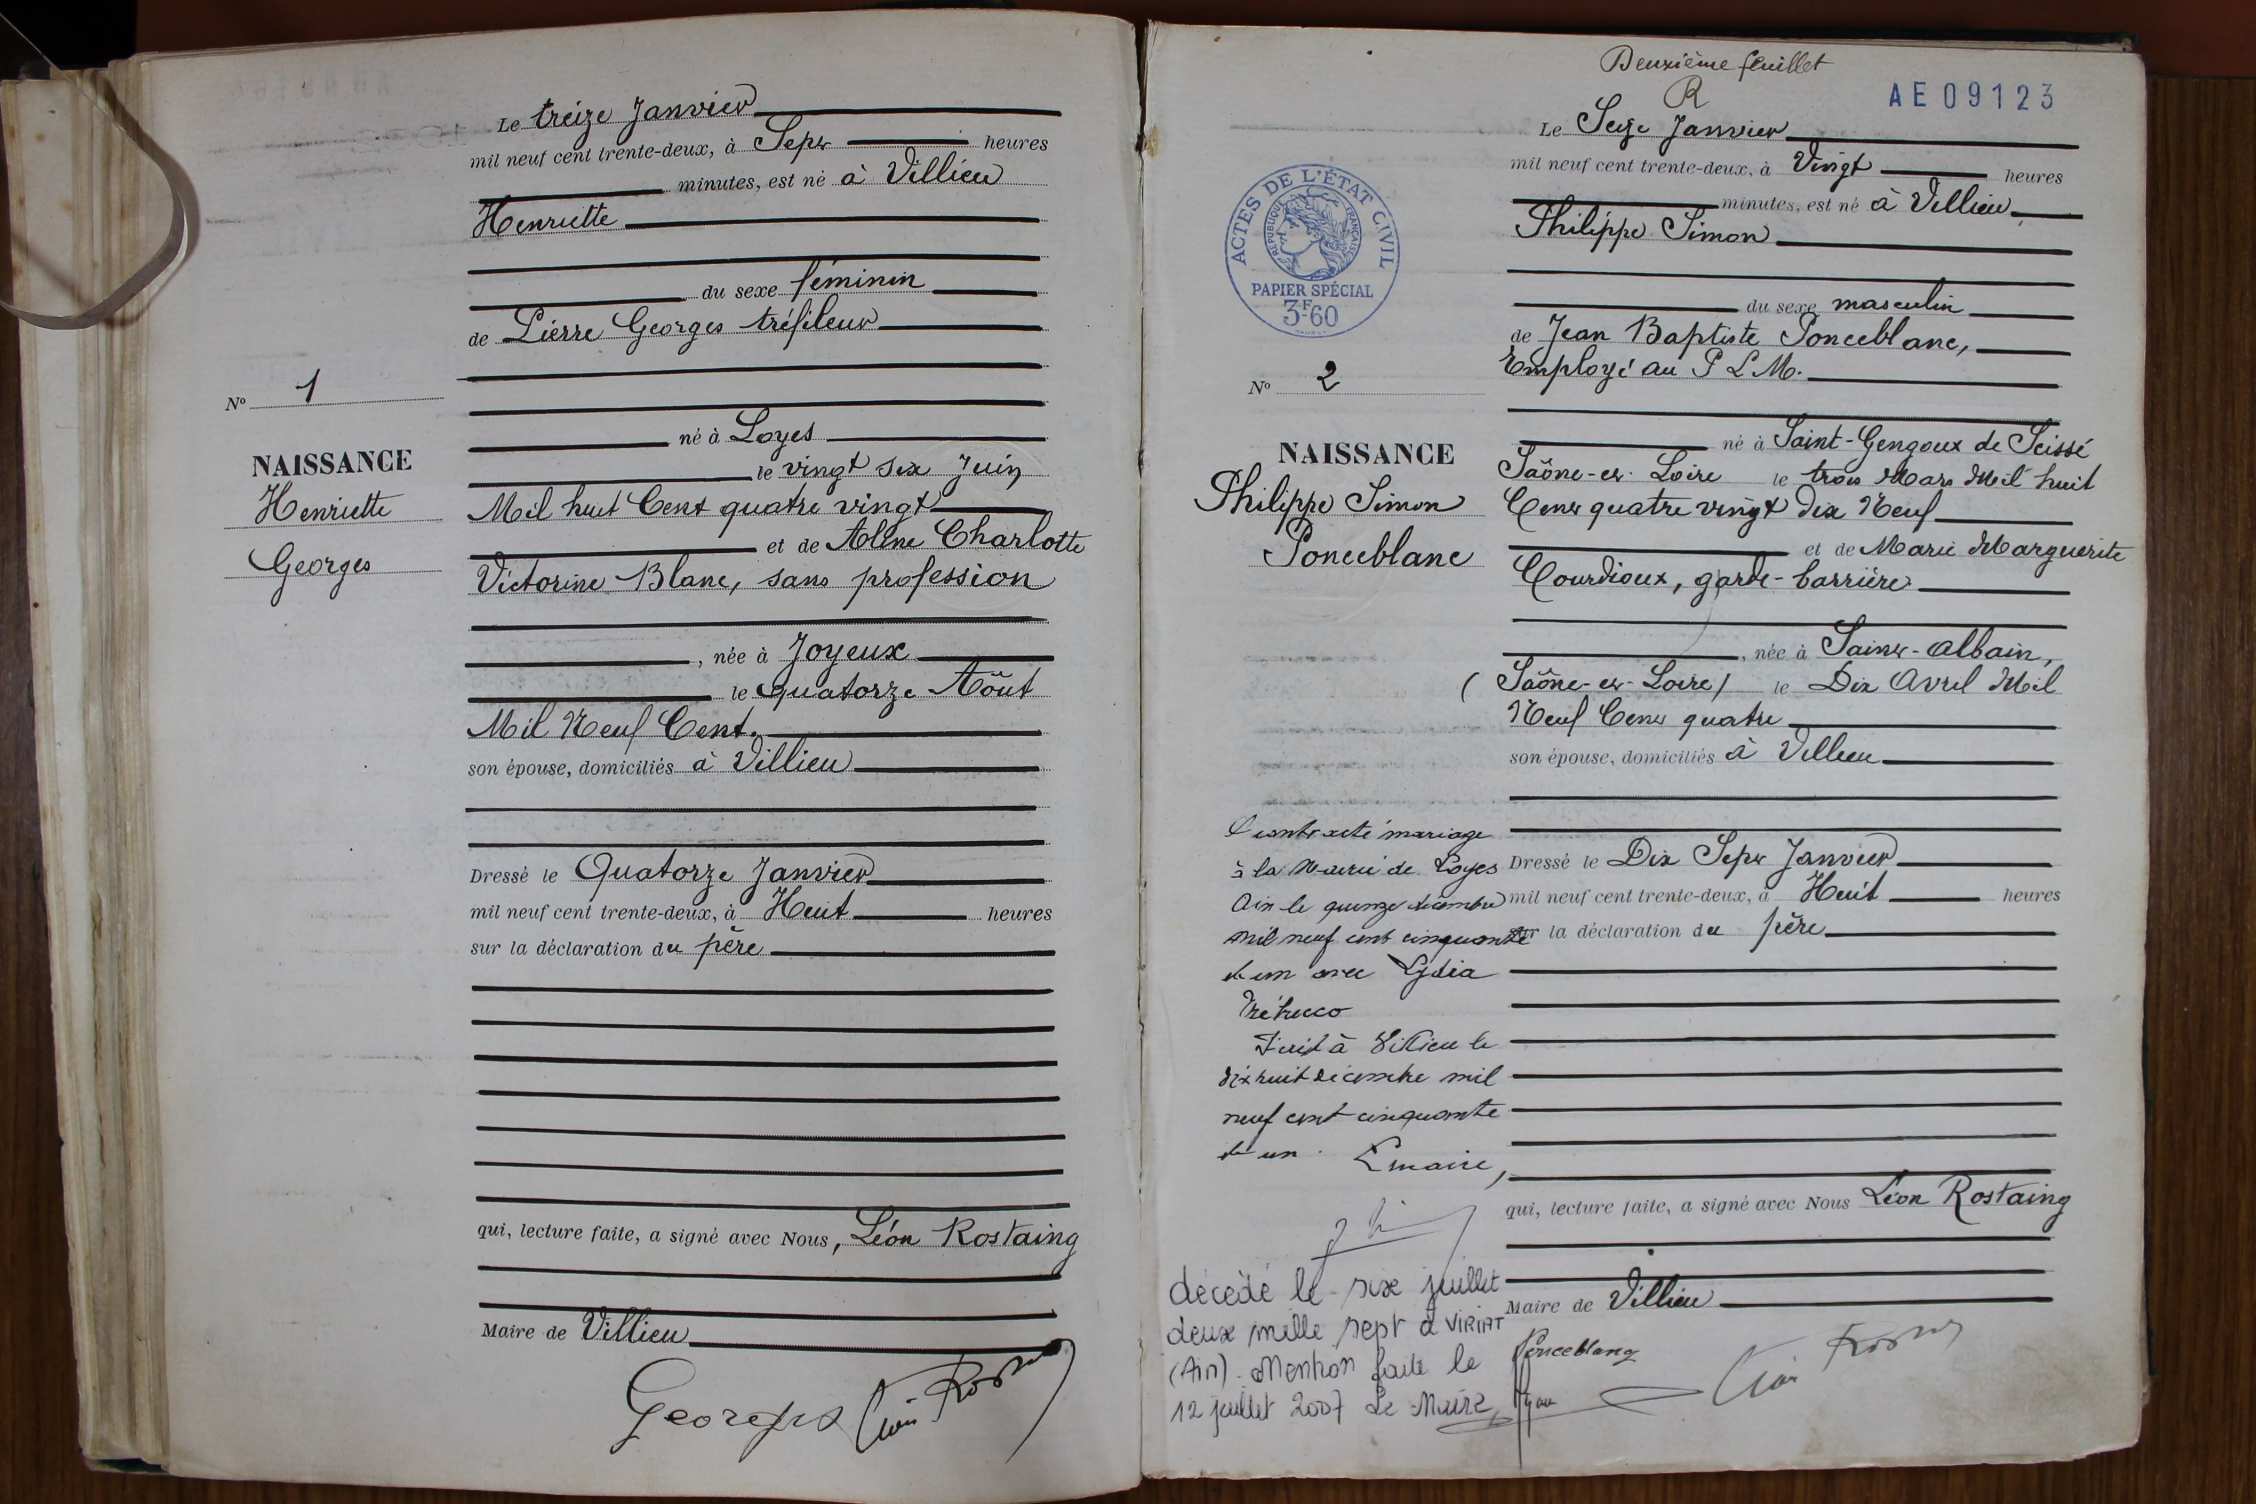 Le treize Janvier
mil neuf cent trente-deux, à Sept heures
minutes, est né à Villieu
Henriette
du sexe féminin
de Pierre Georges tréfileur
Nº 1
né à Loyes
NAISSANCE
le vingt six Juin
Henriette
Mil huit Cent quatre vingt
et de Aline Charlotte
Georges
Victorine Blanc, sans profession
, née à Joyeux
le quatorze Août
Mil Neuf Cent.
son épouse, domiciliés à Villieu
Dressé le Quatorze Janvier
mil neuf cent trente-deux, à Huit heures
sur la déclaration du père
qui, lecture faite, a signé avec Nous, Léon Rostaing
Maire de Villieu
Georges
Deuxième feuillet
R
AE09123
Le Seize Janvier
mil neuf cent trente-deux, à Vingt heures
minutes, est né à Villieu
Philippe Simon
ACTES DE L'ÉTAT CIVIL
RÉPUBLIQUE FRANÇAISE
PAPIER SPÉCIAL
3F60
du sexe masculin
de Jean Baptiste Ponceblanc,
Employé au P L M.
Nº 2
né à Saint-Gengoux de Scissé
NAISSANCE
Saône-et-Loire le trois Mars Mil huit
Philippe Simon
Cent quatre vingt dix Neuf
Ponceblanc
et de Marie Marguerite
Courdioux, garde-barrière
, née à Saint-Albain,
(Saône-et-Loire) le Dix Avril Mil
Neuf Cent quatre
son épouse, domiciliés à Villieu
Dressé le Dix Sept Janvier
mil neuf cent trente-deux, à Huit heures
sur la déclaration du père
qui, lecture faite, a signé avec Nous Léon Rostaing
Maire de Villieu
Ponceblanc
Contracté mariage
à la Mairie de Loyes
Ain le quinze décembre
mil neuf cent cinquante
et un avec Lydia
dix huit décembre mil
neuf cent cinquante
et un. Le maire,
décédé le six juillet
deux mille sept à VIRIAT
(Ain). Mention faite le
12 juillet 2007 Le Maire,